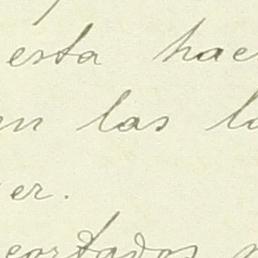 esta hac
n las l
er.
cortados